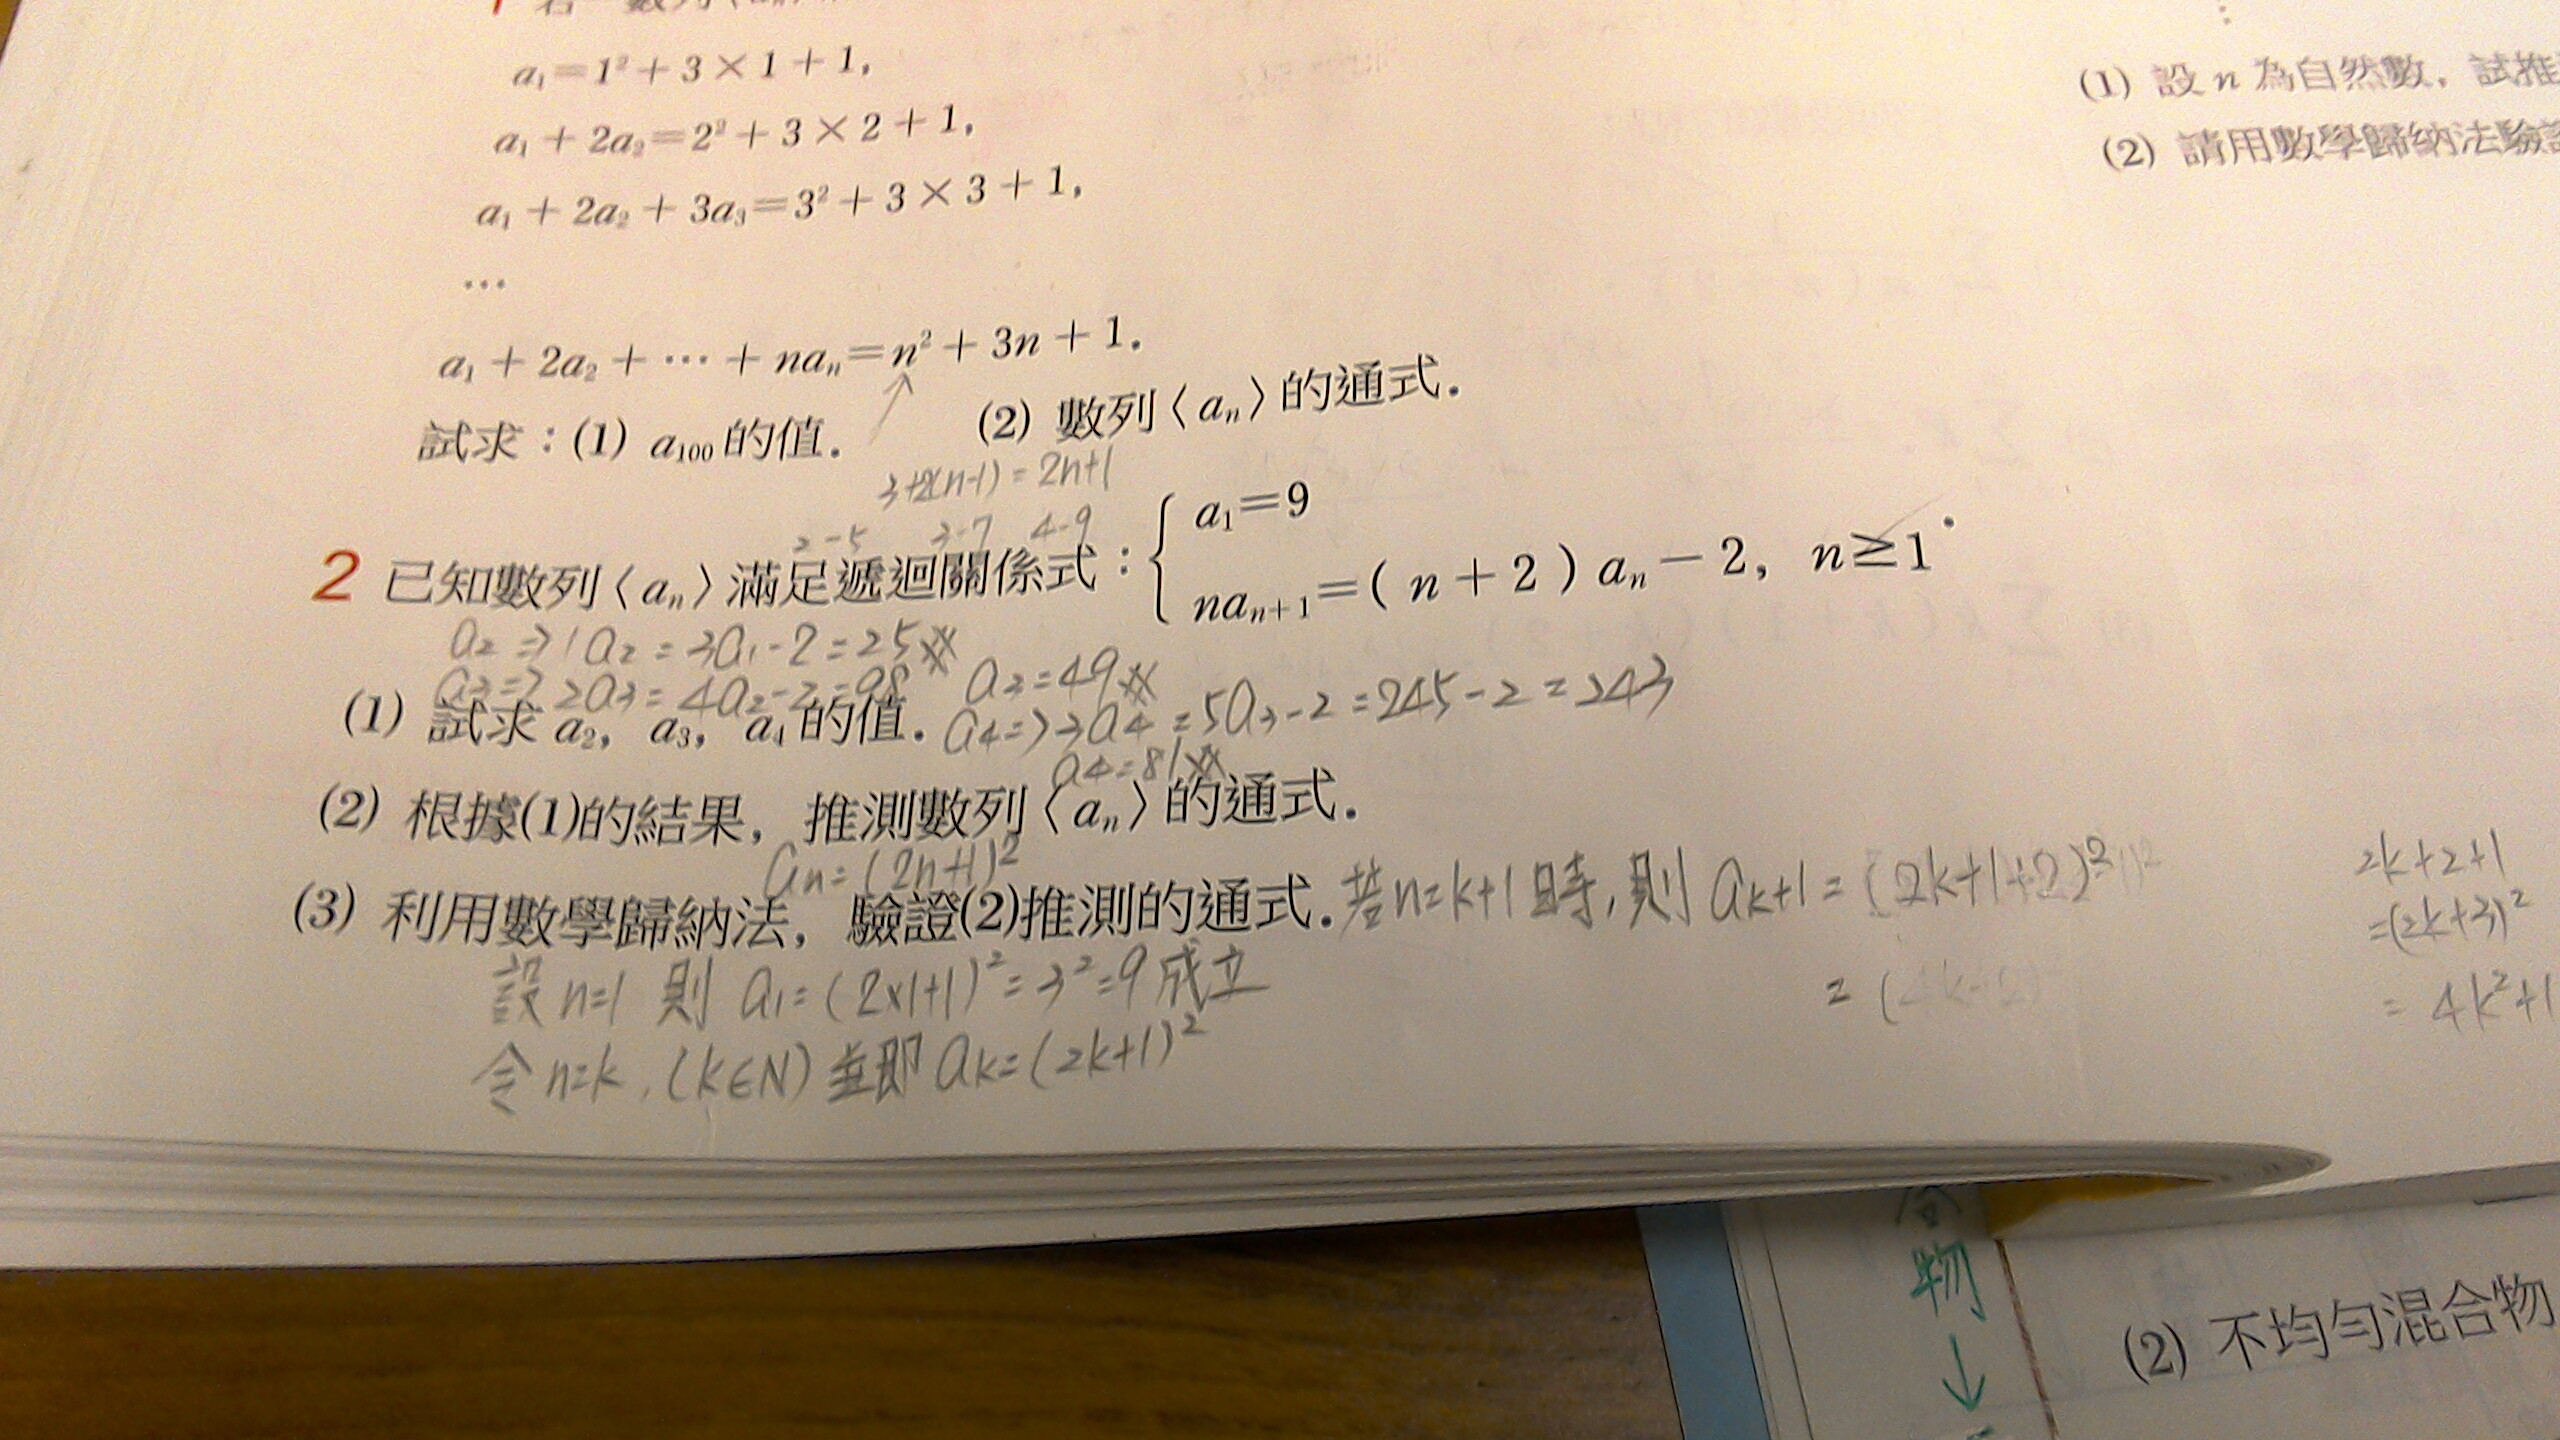 a₁=1²+3×1+1,
a₁+2a₂=2²+3×2+1,
a₁+2a₂+3a₃=3²+3×3+1,
…
a₁+2a₂+…+naₙ=n²+3n+1.
試求：(1) a₁₀₀的值. (2) 數列〈aₙ〉的通式.
3+2(n-1)=2n+1
2-5 3-7 4-9
2 已知數列〈aₙ〉滿足遞迴關係式：{ a₁=9
naₙ₊₁=(n+2)aₙ-2, n≥1.
a₂⇒1a₂=3a₁-2=25
a₃⇒2a₃=4a₂-2=98 a₃=49
(1) 試求 a₂, a₃, a₄的值. a₄⇒3a₄=5a₃-2=245-2=243
a₄=81
(2) 根據(1)的結果, 推測數列〈aₙ〉的通式.
aₙ=(2n+1)²
(3) 利用數學歸納法, 驗證(2)推測的通式. 若n=k+1時,則 aₖ₊₁=(2k+1+2)²
設n=1 則 a₁=(2×1+1)²=3²=9成立
=(
令n=k,(k∈N) 即 aₖ=(2k+1)²
2k+2+1
=(2k+3)²
=4k²+1
(1) 設 n 為自然數, 試推
(2) 請用數學歸納法驗證
物
↓
(2) 不均勻混合物